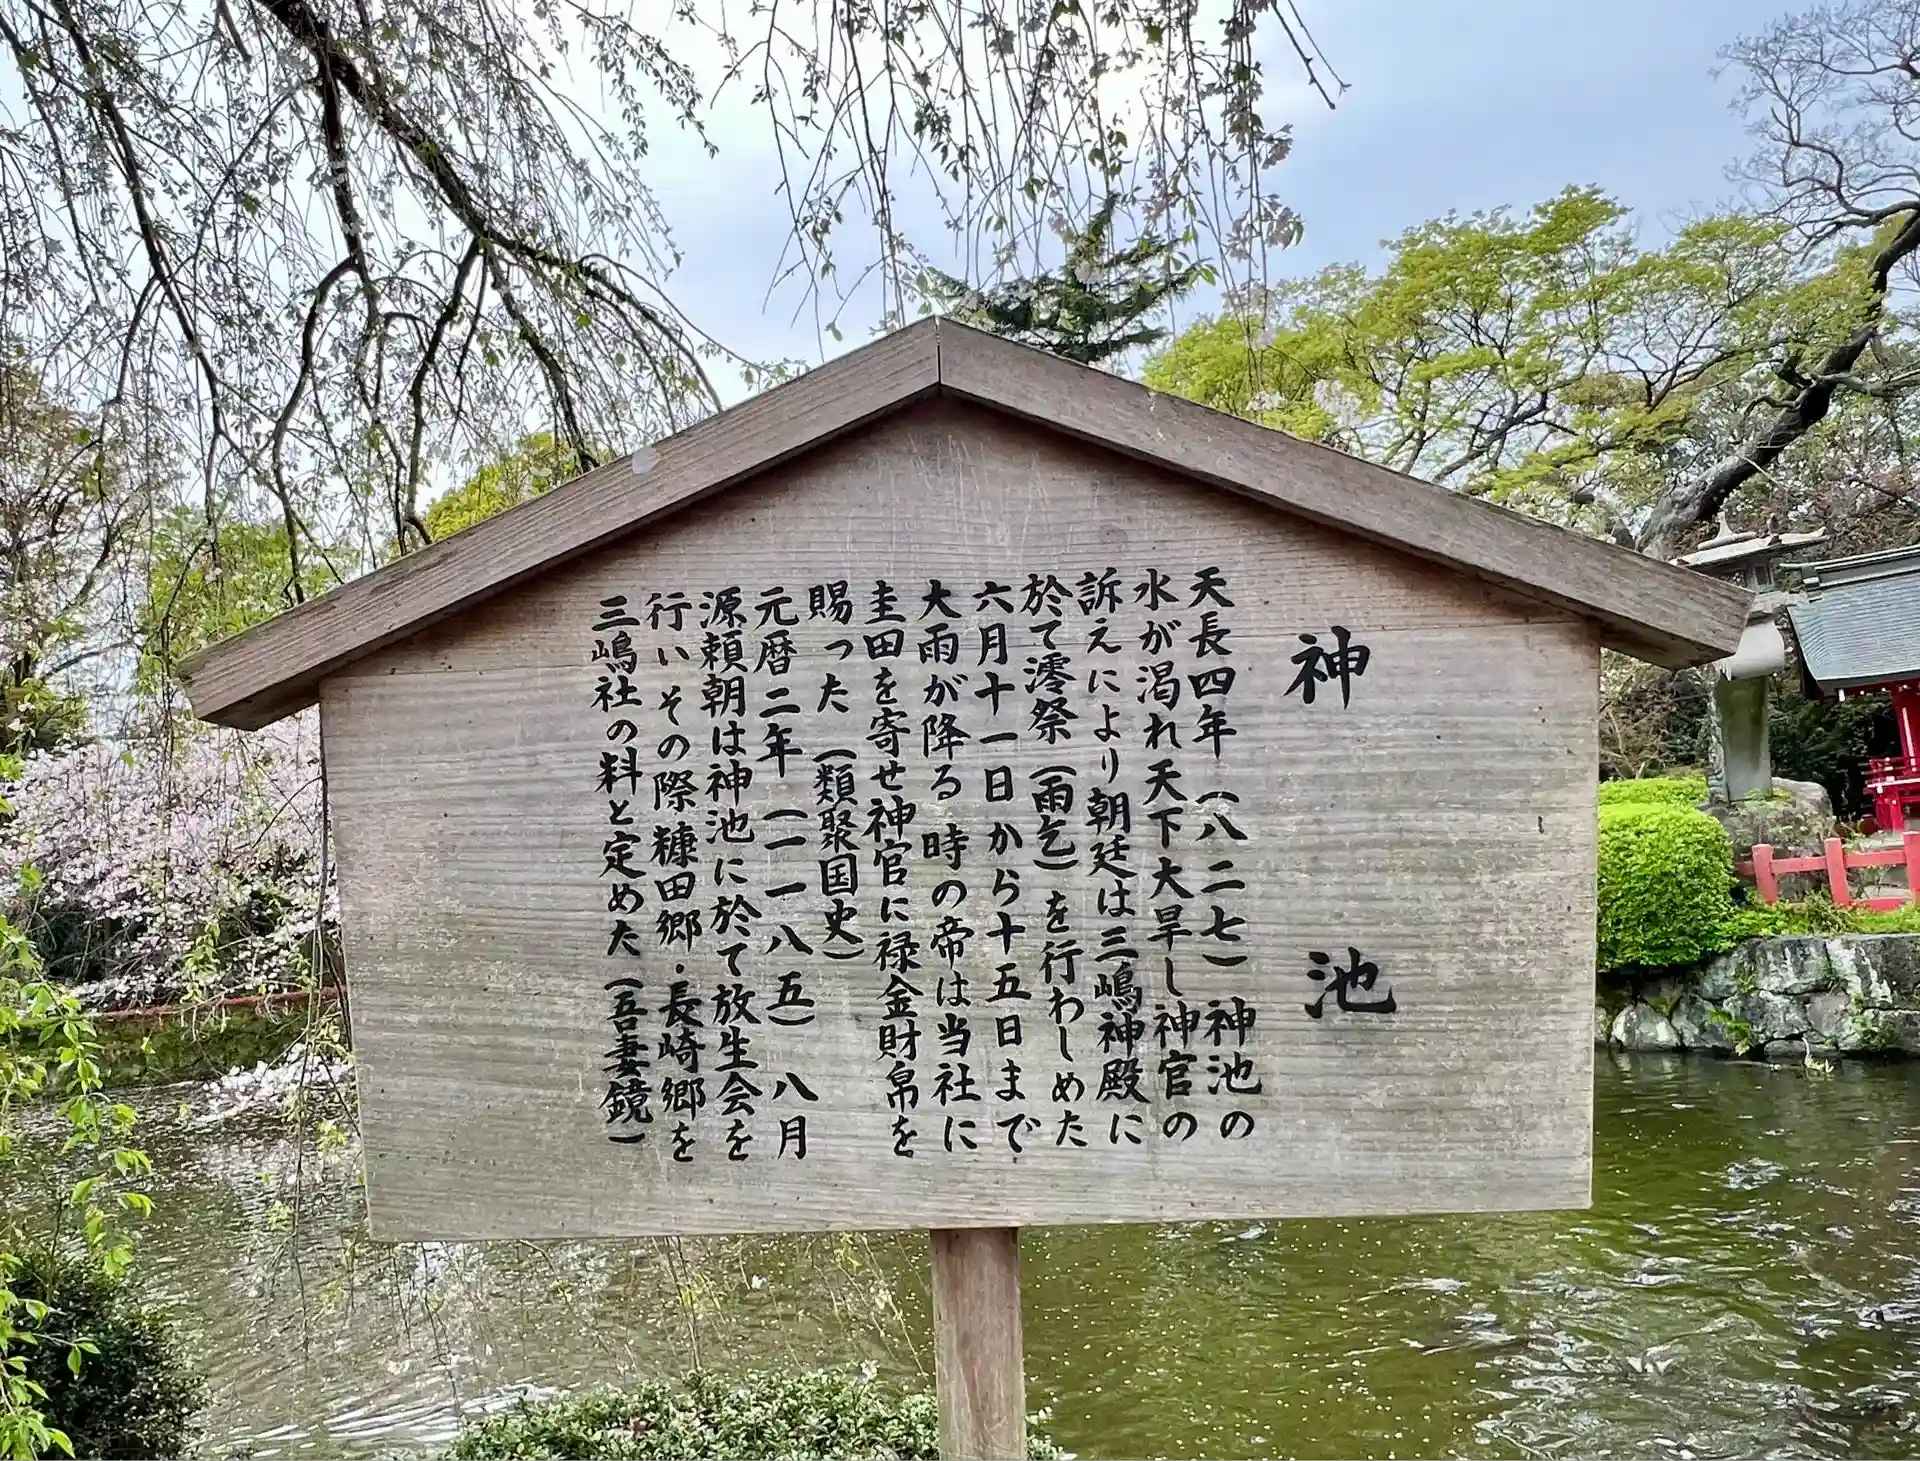 神池
天長四年(八二七)神池の
水が渇れ天下大旱し神官の
訴えにより朝廷は三嶋神殿に
於て澪祭(雨乞)を行わしめた
六月十一日から十五日まで
大雨が降る 時の帝は当社に
圭田を寄せ神官に禄金財帛を
賜った(類聚国史)
元暦二年(一一八五)八月
源頼朝は神池に於て放生会を
行いその際糠田郷・長崎郷を
三嶋社の料と定めた(吾妻鏡)